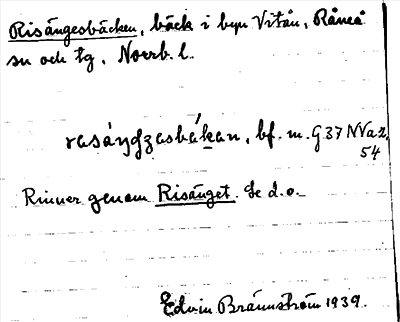 Risängesbäcken, bäck i byn Vitån, Råneå
sn och tg, Norrb. l.
rasáŋʤasbákan, bf. m. G37 NVaz,
54
Rinner genom Risänget. Se d.o.
Edvin Brännström 1939.